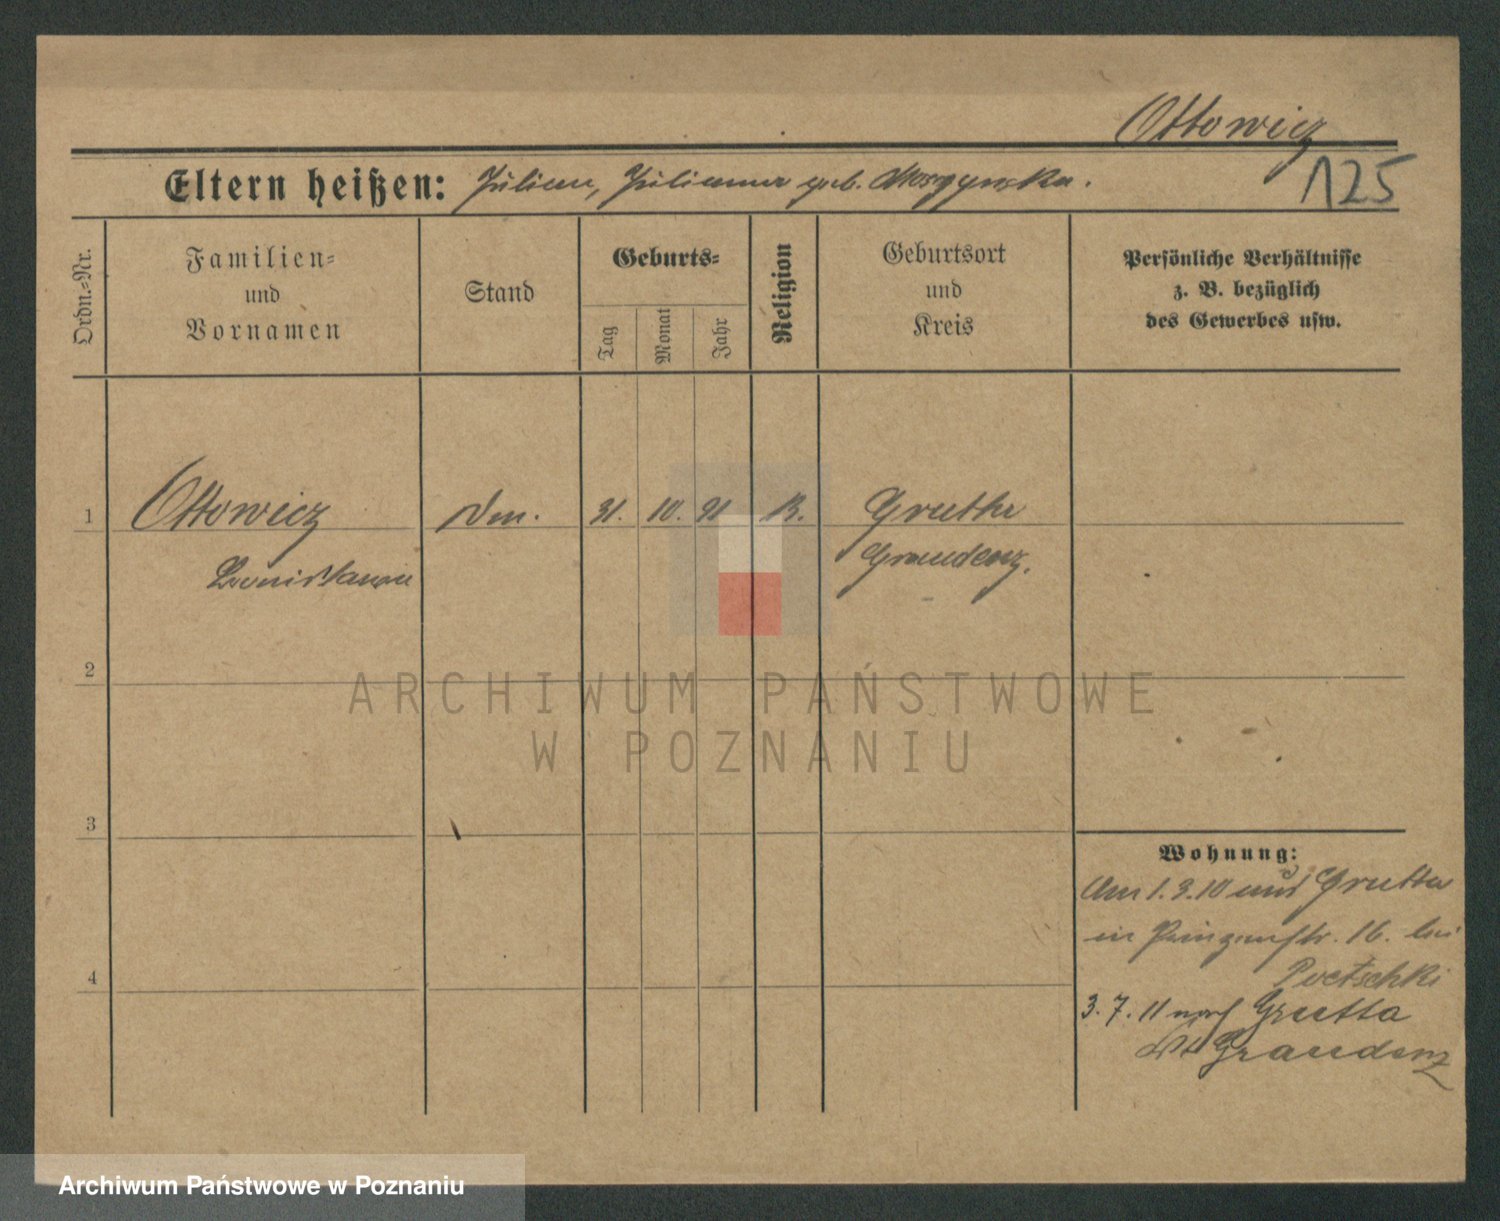 Ottowicz
125
Eltern heißen: Julian, Julianna geb. Moszynska.
Ordn.=Nr.
Familien=
und
Vornamen
Stand
Geburts=
Tag
Monat
Jahr
Religion
Geburtsort
und
Kreis
Persönliche Verhältnisse
z. B. bezüglich
des Gewerbes usw.
1 Ottowicz 31. 10. 91 Grutta
Graudenz.
2
3
4
Wohnung:
Am 1. 3. 10 aus Grutta
in Prinzenstr. 16. bei
Poetschki
3. 7. 11 nach Grutta
Graudenz
ARCHIWUM PAŃSTWOWE
W POZNANIU
Archiwum Państwowe w Poznaniu